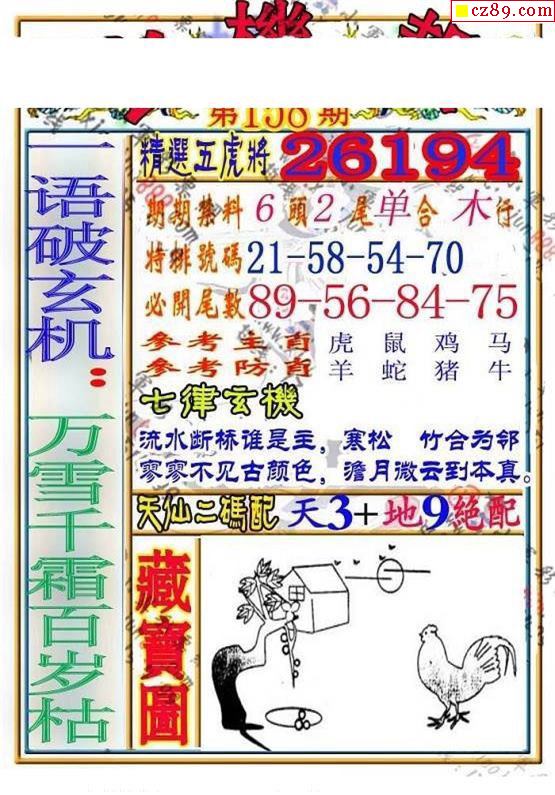 cz89.com
機
第158期
一语破玄机：万雪千霜百岁枯
精選五虎將 26194
期期禁料 6頭2尾单合木行
特排號碼 21-58-54-70
必開尾數 89-56-84-75
參考主肖 虎 鼠 鸡 马
參考防肖 羊 蛇 猪 牛
七律玄機
流水断桥谁是主，寒松 竹合为邻
寥寥不见古颜色，澹月微云到本真。
天仙二碼配 天3+地9絕配
藏寶圖